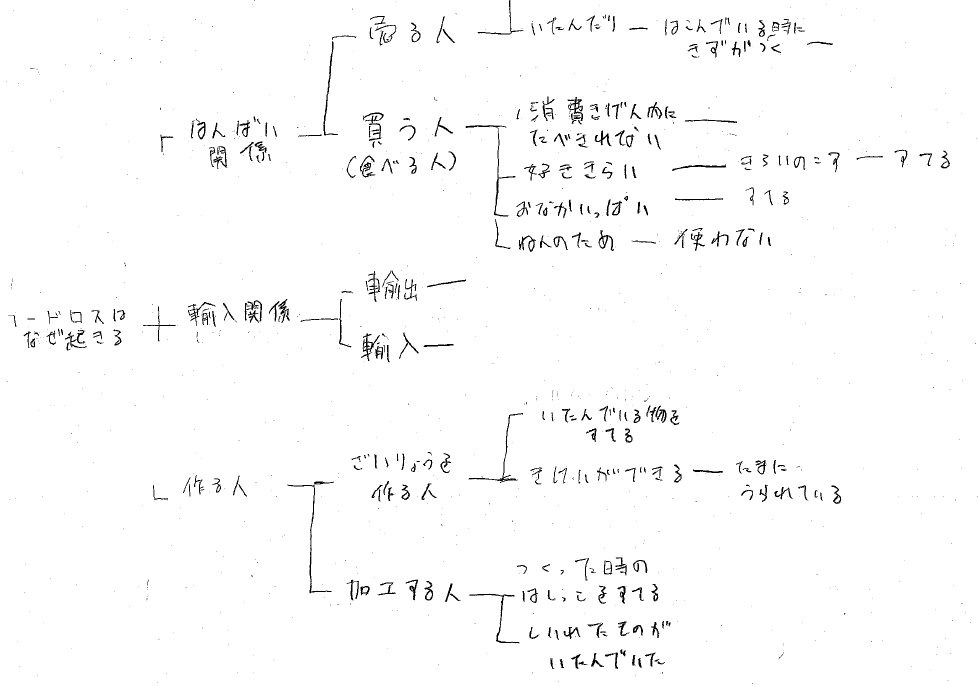 売る人
いたんだり
はこんでいる時に
きずがつく
はんばい
関係
買う人
(食べる人)
消費きげん内に
たべきれない
好ききらい
きらいのこす
すてる
おなかいっぱい
すてる
ねんのため
使わない
フードロスは
なぜ起きる
輸入関係
輸出
輸入
作る人
ざいりょうを
作る人
いたんでいる物を
すてる
きけいができる
たまに
うられている
加工する人
つくった時の
はしっこをすてる
しいれたものが
いたんでいた